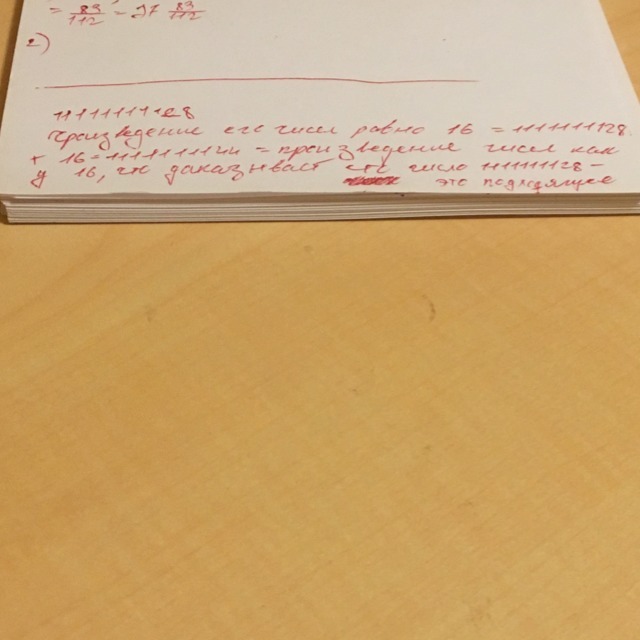 = 83/112 = 27 83/112
2)
1111111128
произведение его чисел равно 16 = 1111111128.
+ 16 = 1111111144 = произведение чисел как
у 16, что доказывает что число 1111111128 -
это подходящее